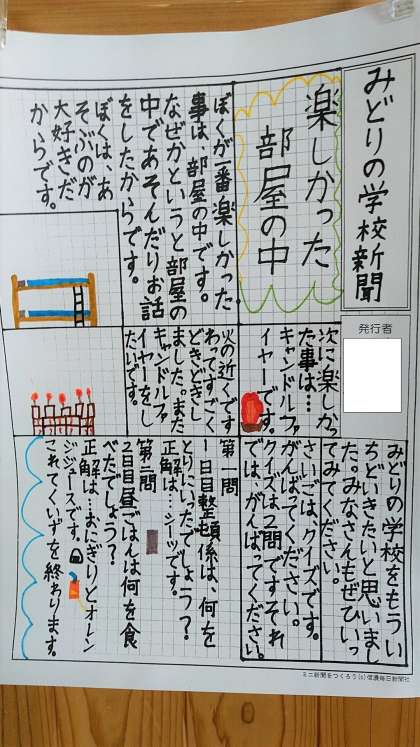 みどりの学校新聞
発行者
楽しかった
部屋の中
ぼくが一番楽しかった
事は、部屋の中です。
なぜかというと部屋の
中であそんだりお話
をしたからです。
ぼくは、あ
そぶのが
大好きだ
からです。
次に楽しか
た事は…
キャンドルファ
イヤーです。
火の近くです
わってすごく
どきどきし
ました。また
キャンドルファ
イヤーをし
たいです。
みどりの学校をもういっ
ちどいきたいと思いまし
た。みなさんもぜひいっ
てみてください。
さいごは、クイズです。
がんばてください。
クイズは2問ですそれ
では、がんばってください。
第一問
1日目整頓係は、何を
とりにいったでしょう?
正解は…シーツです。
第二問
2日目昼ごはんは何を食
べたでしょう?
正解は…おにぎりとオレン
ジジュースです。
これでくいずを終わります。
ミニ新聞をつくろう(c)信濃毎日新聞社